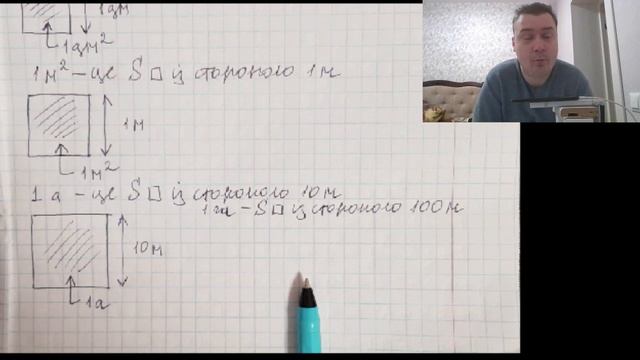 1дм
1дм²
1м² – це S □ із стороною 1м
1м
1м²
1а – це S □ із стороною 10м
1га – S □ із стороною 100м
10м
1а